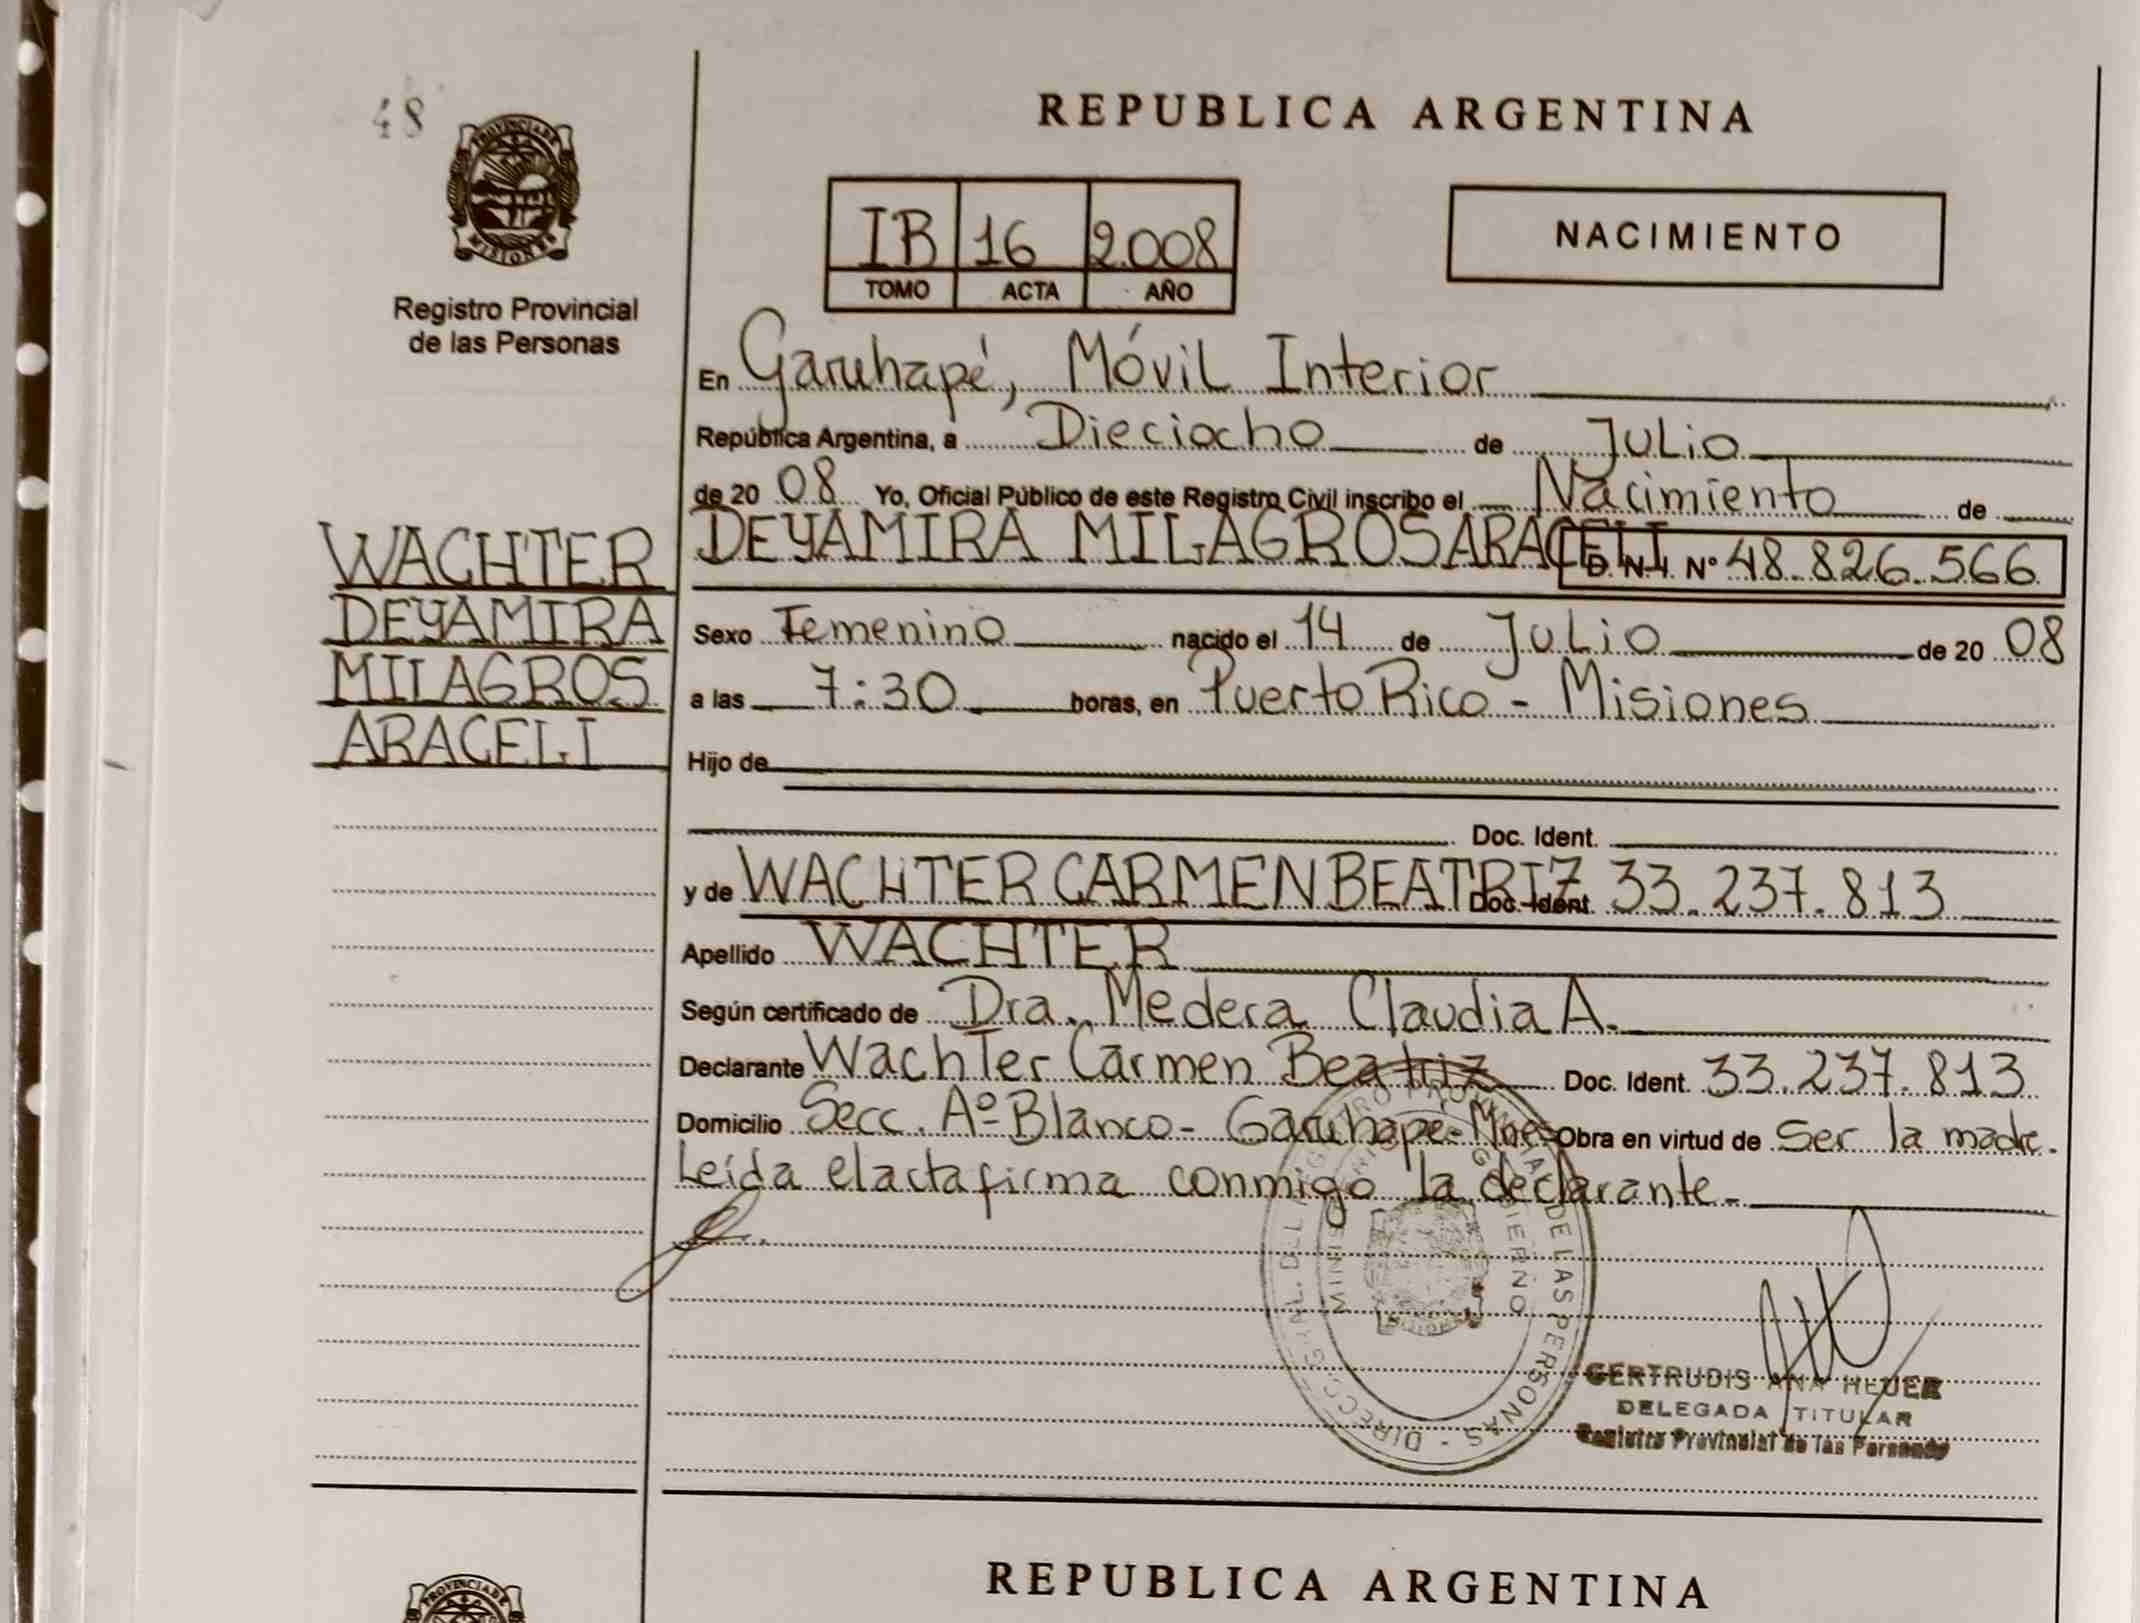 48
PROVINCIA DE
MISIONES
Registro Provincial
de las Personas
REPUBLICA ARGENTINA
IB 16 2.008
TOMO ACTA AÑO
NACIMIENTO
En Garuhapé, Móvil Interior
República Argentina, a Dieciocho de Julio
de 20 08 Yo, Oficial Público de este Registro Civil inscribo el Nacimiento de
DEYAMIRA MILAGROS ARACELI D.N.I. Nº 48.826.566
WACHTER
DEYAMIRA
MILAGROS
ARACELI
Sexo Femenino nacido el 14 de Julio de 20 08
a las 7:30 horas, en Puerto Rico - Misiones
Hijo de
Doc. Ident.
y de WACHTER CARMEN BEATRIZ Doc. Ident. 33.237.813
Apellido WACHTER
Según certificado de Dra. Medera Claudia A.
Declarante Wachter Carmen Beatriz Doc. Ident. 33.237.813
Domicilio Secc. Aº Blanco - Garuhapé - Mnes Obra en virtud de Ser la madre.
Leída el acta firma conmigo la declarante.
DIRECC. GRAL. DEL REGISTRO PROVINCIAL DE LAS PERSONAS -
GERTRUDIS ANA HEUER
DELEGADA TITULAR
Registro Provincial de las Personas
PROVINCIA DE
REPUBLICA ARGENTINA